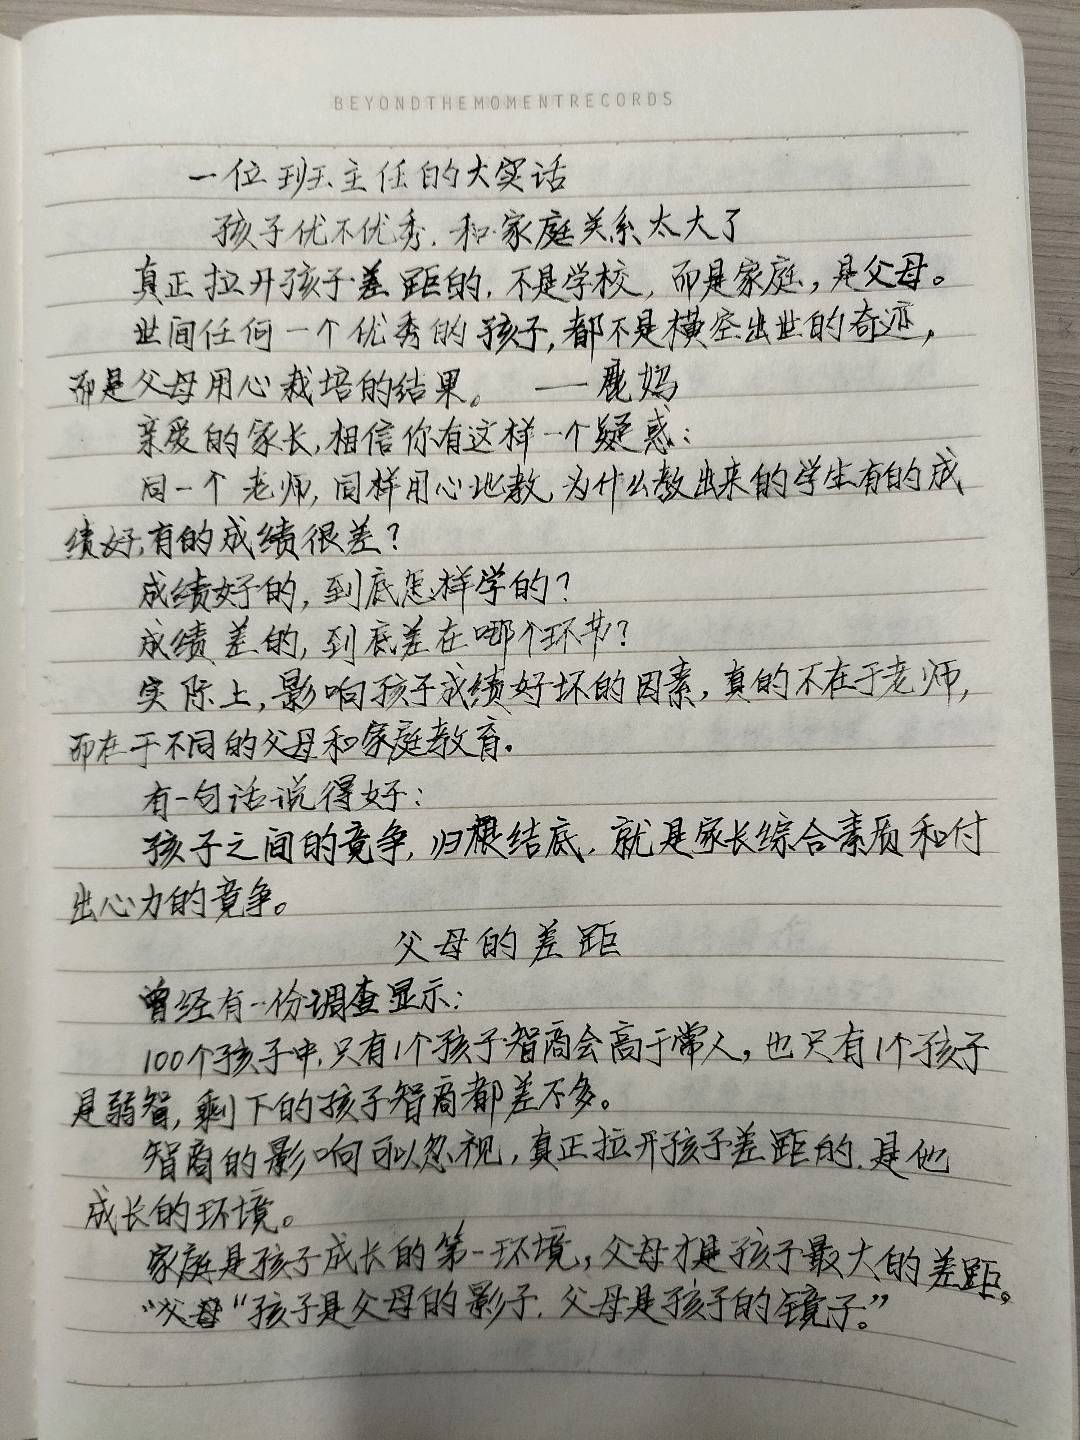 BEYONDTHEMOMENTRECORDS
一位班主任的大实话
孩子优不优秀,和家庭关系太大了
真正拉开孩子差距的,不是学校,而是家庭,是父母。
世间任何一个优秀的孩子,都不是横空出世的奇迹,
而是父母用心栽培的结果。 ——鹿妈
亲爱的家长,相信你有这样一个疑惑:
同一个老师,同样用心地教,为什么教出来的学生有的成
绩好,有的成绩很差?
成绩好的,到底怎样学的?
成绩差的,到底差在哪个环节?
实际上,影响孩子成绩好坏的因素,真的不在于老师,
而在于不同的父母和家庭教育。
有一句话说得好:
孩子之间的竞争,归根结底,就是家长综合素质和付
出心力的竞争。
父母的差距
曾经有一份调查显示:
100个孩子中,只有1个孩子智商会高于常人,也只有1个孩子
是弱智,剩下的孩子智商都差不多。
智商的影响可以忽视,真正拉开孩子差距的,是他
成长的环境。
家庭是孩子成长的第一环境,父母才是孩子最大的差距。
“父母“孩子是父母的影子,父母是孩子的镜子。”